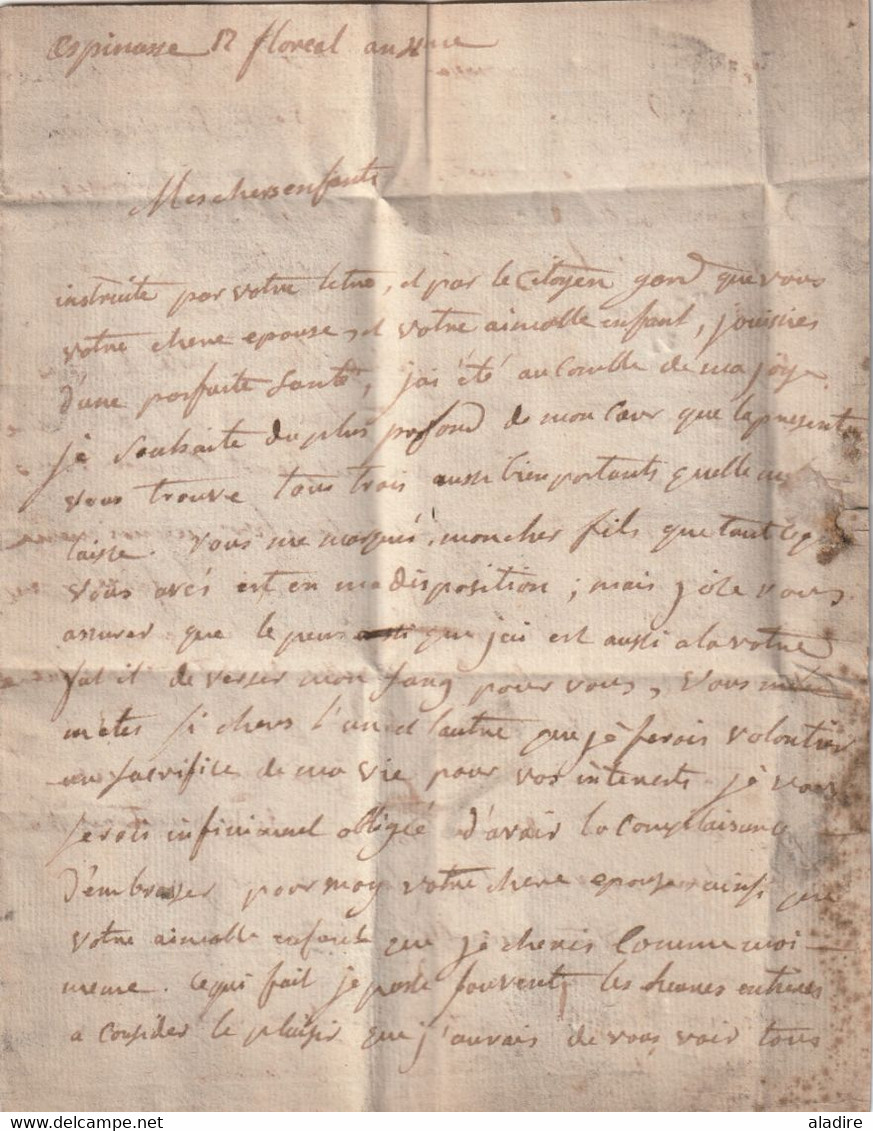 Espinasse 12 floreal an xme
Mes chers enfants
instruite par votre letre, et par le Citoyen gard que vous
votre chere epouse, et votre aimable enfant, jouisses
d'une parfaite santé, j'ai été au Comble de ma joye.
jè souhaite du plus profond de mon Coeur que la presente
vous trouve tous trois aussi bien portants quelle me
laisse. Vous me marqués, mon cher fils que tout ce que
vous avés est en ma disposition; mais j'ose vous
assurer que le peu que j'ai est aussi a la votre
fut il de verser mon sang pour vous, Vous
m'etes si chers l'un et l'autre que jè ferais volontier
un sacrifice de ma vie pour vos interests. jè vous
serois infiniment obligée d'avoir la Complaisance
d'embrasser pour moy votre chere epouse ainsi que
votre aimable enfant que jè cheris Comme moi
meme. Ce qui fait je passe souvent les heures entieres
a Considerer le plaisir que j'aurais de vous voir tous
aladire
delcampe.net